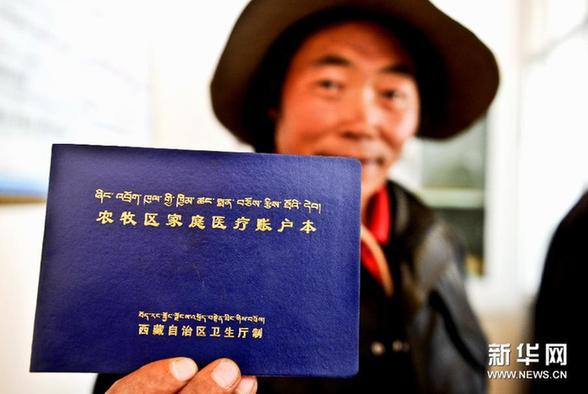 ཞིང་འབྲོག་ཁུལ་གྱི་ཁྱིམ་ཚང་སྨན་བཅོས་རྩིས་ཐོའི་དེབ།
农牧区家庭医疗账户本
西藏自治区卫生厅制
新华网
WWW.NEWS.CN